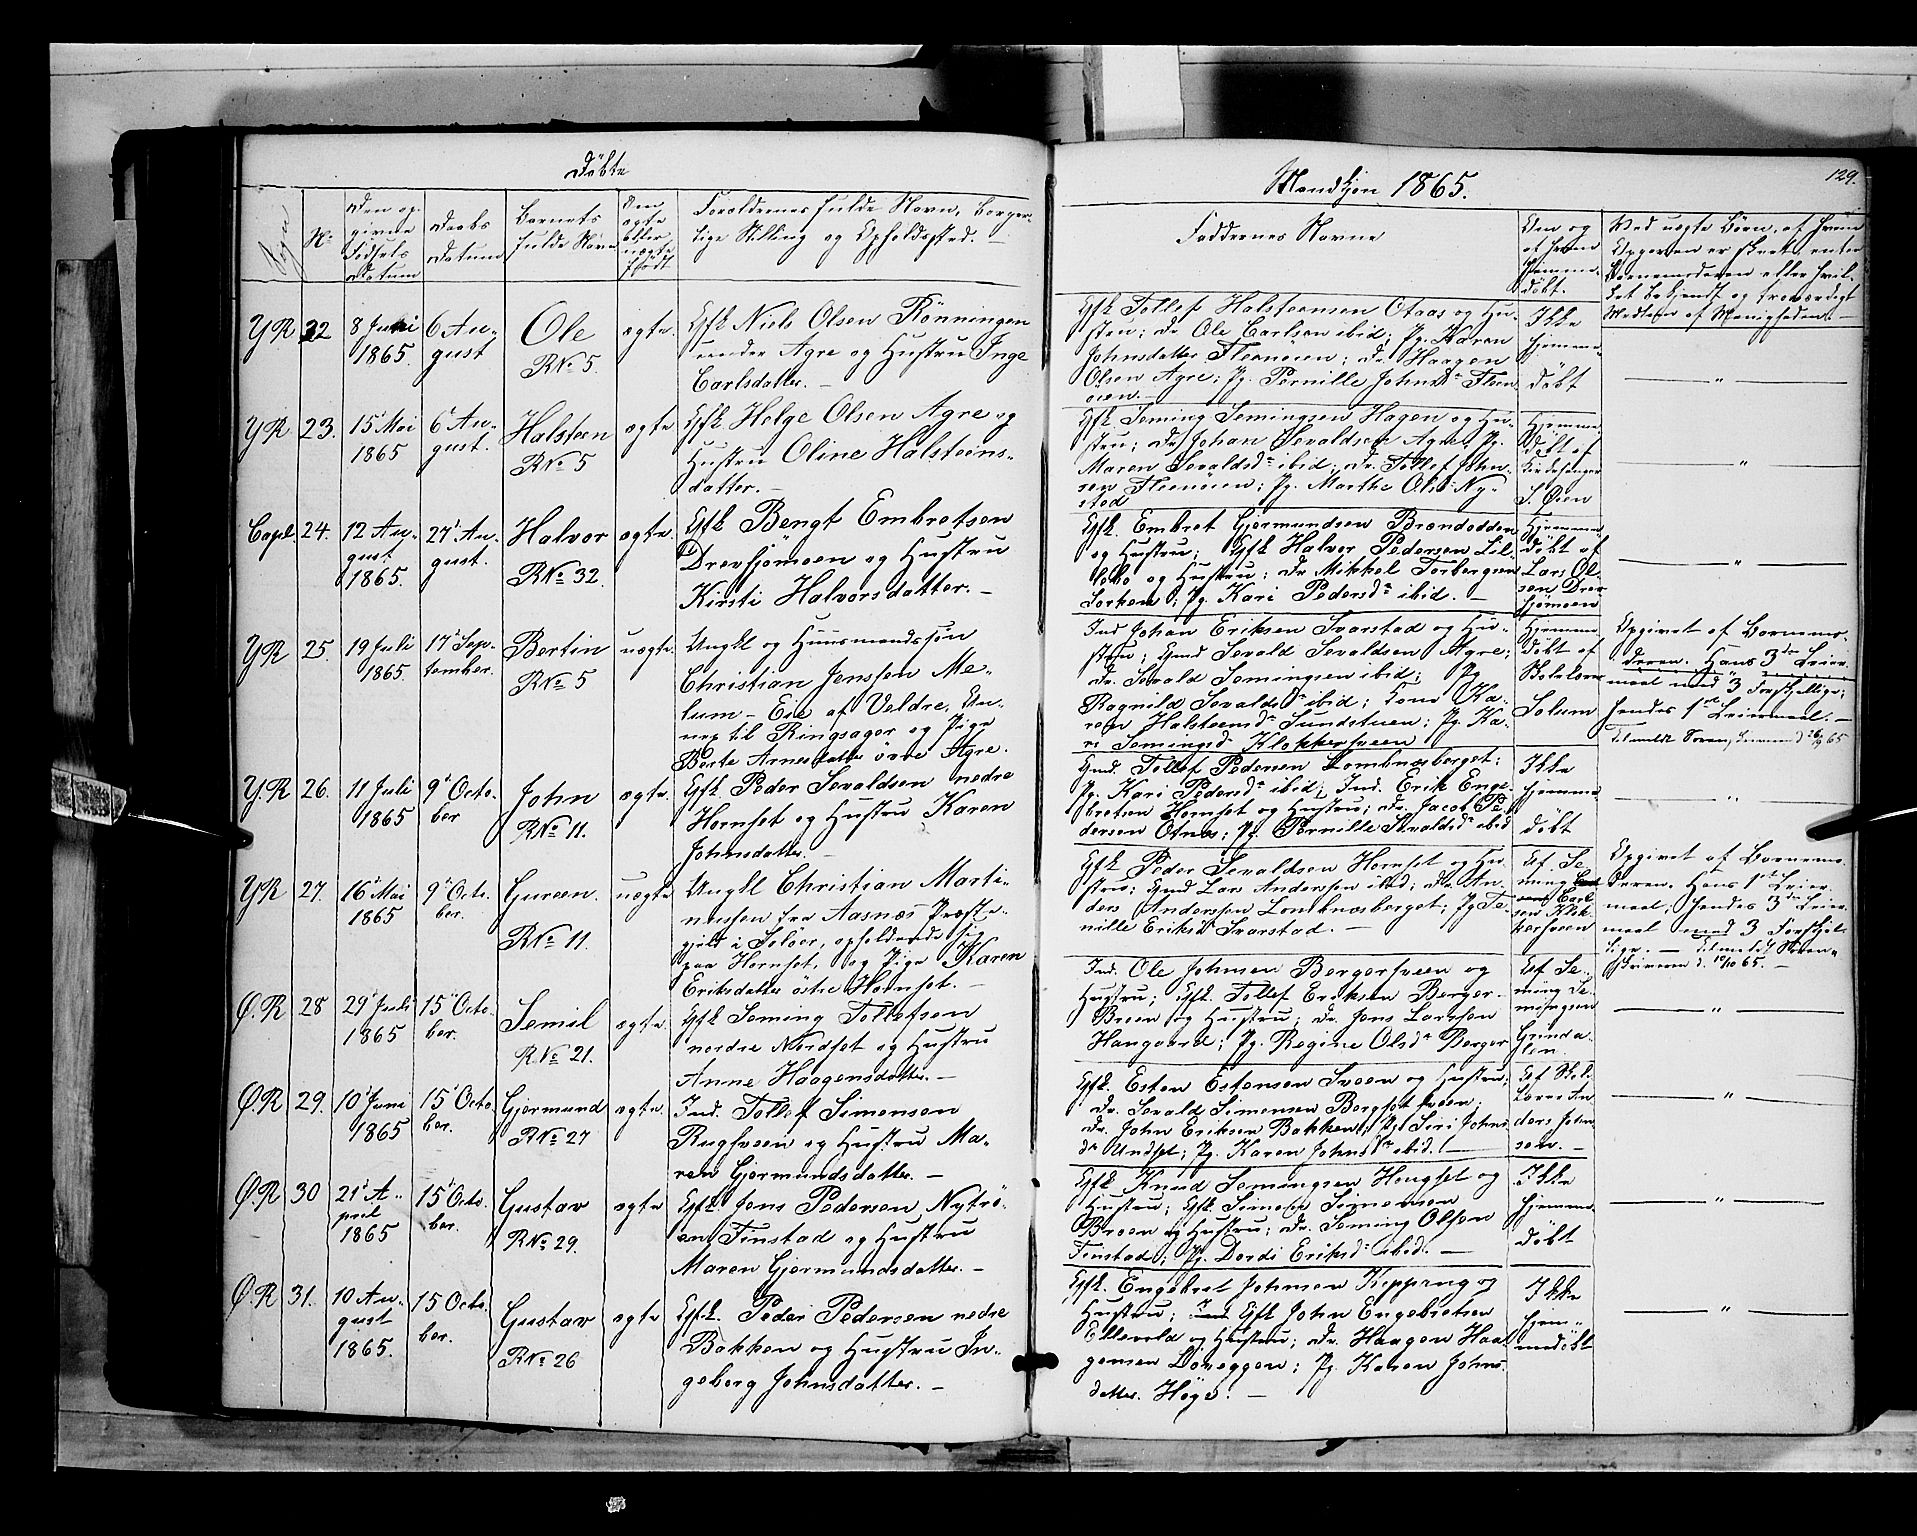 Døbte
Mandkjøn 1865.
129.
Sogn
No
Den op-
givne
Fødsels
Datum
Daabs
Datum
Barnets
fulde Navn
Om
ægte
eller
uægte
født
Forældrenes fulde Navn, borger-
lige Stilling og Opholdssted. —
Faddernes Navne
Om og
af hvem
hjemme-
døbt.
Ved uægte Børn, af hvem
Opgaven er skeet, enten
Barnemoderen eller hvil-
ket bekjendt og troværdigt
Medlem af Menigheden. —
Y R 22
8 Juni
1865.
6 Au-
gust
Ole
R No 5.
ægte.
Gfk Niels Olsen Rönningen
under Agre og Hustru Inge
Carlsdatter. —
Gfk Tollef Halsteensen Otaas og Hu-
stru; Dr. Ole Carlsen ibid; Pg. Karen
Johnsdatter Fleenøien; Dr. Haagen
Olsen Agre; Pg. Pernille Johnsdr Fleen-
øien. —
Ikke
hjemme-
døbt
— " —
Y R 23.
15 Mai
1865
6 Au-
gust.
Halsteen
R No 5
ægte
Gfk Helge Olsen Agre og
Hustru Oline Halsteens-
datter. —
Gfk Seming Semingsen Hagen og Hu-
stru; Dr. Johan Sevaldsen Agre; Pg.
Maren Sevaldsdr ibid; Dr. Tollef John-
sen Fleenøien; Pg. Marthe Olsdr Ny-
stad
Hjemme-
døbt af
Kirkesanger
S. Øien
— " —
Capel 24.
12 Au-
gust
1865.
27 Au-
gust.
Halvor
R No 32.
ægte.
Gfk Bengt Embretsen
Drevsjömoen og Hustru
Kirsti Halvorsdatter. —
Gfk. Embret Gjermundsen Brændodden
og Hustru; Gfk Halvor Pedersen Lil-
lebo og Hustru; Dr Mikkel Torbergsen
Sorken; Pg. Kari Pedersdr ibid. —
Hjemme
døbt af
Lars Ol-
sen Drev-
sjømoen
— " —
Y R 25.
19 Juli
1865.
17 Sep-
tember.
Bertin
R No 5
uægte.
Ungkl og Huusmandssøn
Christian Jenssen Me-
lum-Eie af Veldre, An-
nex til Ringsager og Pige
Berte Arnesdatter övre Agre.
Ind Johan Eriksen Svarstad og Hu-
stru; Gmd Sevald Sevaldsen Agre;
Dr. Sevald Semingsen ibid; Pg
Ragnild Sevaldsdr ibid; Kone Ka-
ren Halsteensdr Sundstuen; Pg. Ka-
ri Semingsdr Klokkersveen
Hjemme
døbt af
Skolelærer
Solum
Opgivet af Barnemo-
deren. Hans 3die Leier-
maal med 3 forskjellige;
hendes 1ste Leiermaal. —
Y.R 26.
11 Juli
1865
9 Octo-
ber
John
R No 11.
ægte.
Gfk Peder Sevaldsen nedre
Hornset og Hustru Karen
Johnsdatter. —
Gmd. Tollef Pedersen Lomknæsberget;
Pg. Kari Pedersdr ibid; Ind. Erik Enge-
bretsen Hornset og Hustru; Dr. Jacob Pe-
dersen Otnes; Pg. Pernille Sevaldsdr ibid
Ikke
hjemme-
døbt
— " —
Y R 27.
16 Mai
1865
9 Octo-
ber.
Gureen.
R No 11.
uægte
Ungkl Christian Marti-
nussen fra Aasnæs Præste-
gjeld i Soløer, opholdende sig
paa Hornset, og Pige Karen
Eriksdatter östre Hornset. —
Gfk Peder Sevaldsen Hornset og Hu-
stru; Gmd Lars Anderssen ibid; Dr. An-
ders Anderssen Lomknæsberget; Pg Per-
nille Eriksdr Svarstad. —
Af Se-
ming
Carl-
sen Klok-
kersveen
Opgivet af Barnemo-
deren. Hans 1ste Leier-
maal, hendes 3die Leier-
maal med 3 forskjel-
lige. — Tilmeldt Soren-
skriveren d. 10/10 65. —
Ø.R 28
29 Juli
1865
15 Octo-
ber.
Semil
R.No 21.
ægte
Gfk Seming Tollefsen
nordre Nordset og Hustru
Anne Haagensdatter. —
Ind. Ole Johnsen Bergersveen og
Hustru; Gfk. Tollef Eriksen Berger-
Breen og Hustru; Dr. Jens Larssen
Haugaard; Pg. Regine Olsdr Berger
Af Se-
ming Se-
mingsen
Grinda-
len
— " —
Ø.R 29.
10 Juni
1865
15 Octo-
ber.
Gjermund
R No 27
ægte.
Ind. Tollef Simensen
Rugsveen og Hustru Ma-
ren Gjermundsdatter. —
Gfk. Esten Estensen Sveen og Hustru;
Dr. Sevald Simensen Bergsetsveen;
Dr. John Eriksen Bakken; Pg. Siri Johns-
dr Undset; Pg. Karen Johnsdr ibid. —
Af Skol-
lærer An-
ders John
sen. —
— " —
Ø.R 30
21 A-
pril
1865
15 Octo-
ber.
Gustav
R No 29.
ægte
Gfk. Jens Pedersen Nytrö-
en Finstad og Hustru
Maren Gjermundsdatter. —
Gfk Knud Semingsen Haugset og
Hustru; Gfk Simen Simensen
Broen og Hustru; Dr. Seming Olsen
Finstad; Pg. Dordi Eriksdr ibid. —
Ikke
hjemme-
døbt
— " —
Ø.R 31.
10 Au-
gust
1865.
15 Octo-
ber.
Gustav
R No 26
ægte
Gfk. Peder Pedersen nedre
Bakken og Hustru In-
geborg Johnsdatter. —
Gfk. Engebret Johnsen Kopping og
Hustru; Gfk John Engebretsen
Ellevold og Hustru; Dr. Haagen Haa-
gensen Løveggen; Pg. Karen Johns-
datter Høye. —
Ikke
hjem-
medøbt
— " —